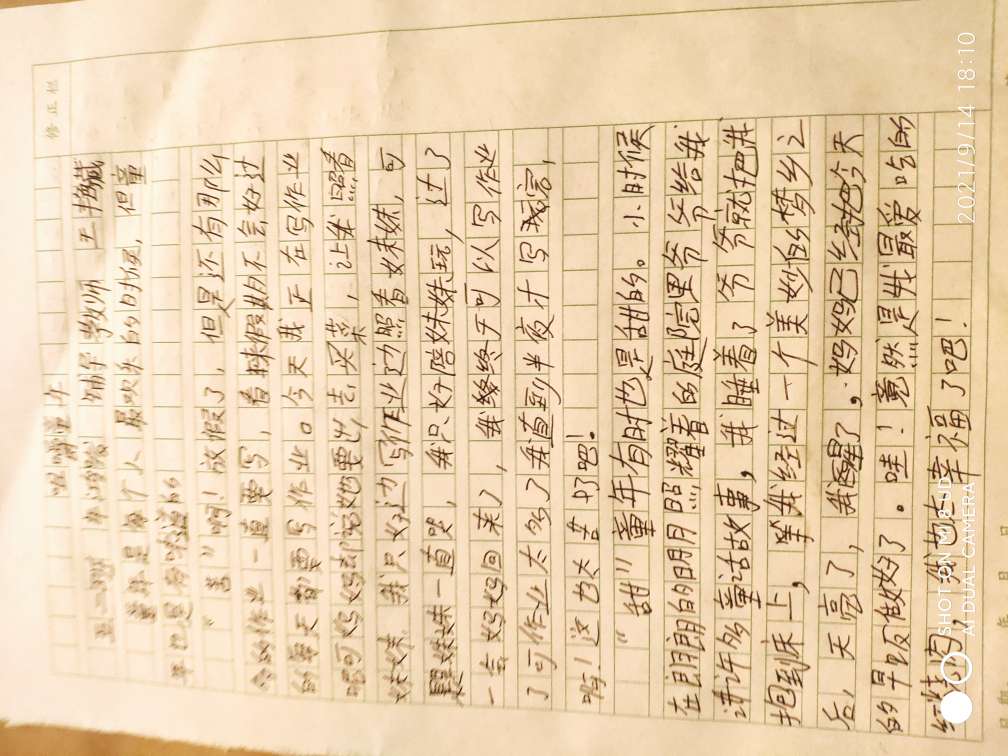 修正栏
味道童年
五二班 辅导教师 王
童年是每个人最欢乐的时候,但童
年也是有味道的
“苦”啊!放假了,但是还有那么
多的作业一直要写,看来假期不会好过
的每天都要写作业。今天我正在写作业
呢可妈妈却说她要出去买菜,让我照看
妹妹。我只好边写作业边照看妹妹,可
是妹妹一直哭,我只好陪妹妹玩,过了
一会妈妈回来了,我终于可以写作业
了可作业太多了我直到半夜才写完,
啊!这也太苦了吧!
“甜”童年有时也是甜的。小时候
在明朗的明月照耀着的庭院里爷爷给我
讲许多童话故事,我睡着了爷爷就把我
抱到床上,等我经过一个美妙的梦乡之
后,天亮了,我醒了,妈妈已经把今天
的早饭做好了。哇!竟然是我最爱吃的
红烧肉,我也太幸福了吧!
SHOT ON MI 8 UD
AI DUAL CAMERA
2021/9/14 18:10